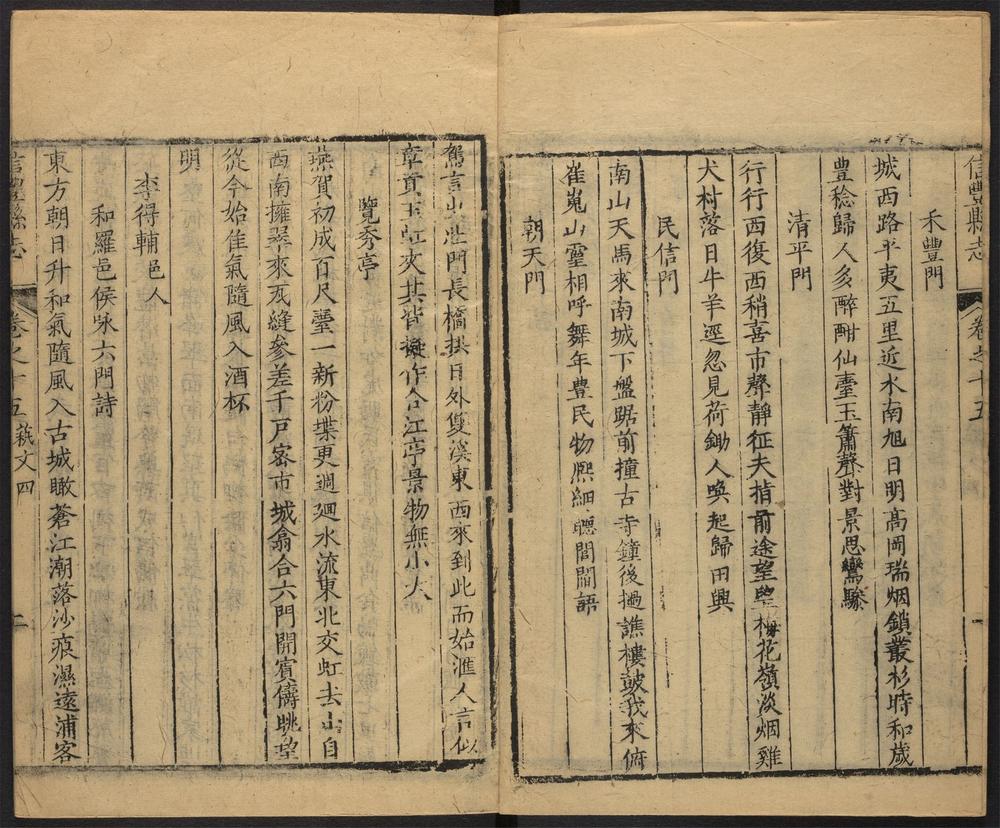 信豐縣志 卷之十五
禾豐門
城西路平夷五里近水南旭日明高岡瑞烟鎖叢杉時和歲
豐稔歸人多醉酣仙臺玉簫聲對景思鸞驂
清平門
行行西復西稍喜市聲靜征夫指前途望望梅花嶺淡烟雞
犬村落日牛羊逕忽見荷鋤人喚起歸田興
民信門
南山天馬來南城下盤踞前撞古寺鐘後撾譙樓鼓我來俯
崔嵬山靈相呼舞年豊民物熙細聽閭閻語
朝天門
駕言出北門長橋掛日外雙溪東西來到此而始滙人言似
章貢玉虹夾其背擬作合江亭景物無小大
覽秀亭
燕賀初成百尺臺一新粉堞更週廻水流東北交虹去山自
西南擁翠來瓦縫參差千戸密市城翕合六門開賓儔眺望
從今始佳氣隨風入酒杯
明
李得輔邑人
和羅邑侯咏六門詩
東方朝日升和氣隨風入古城瞰蒼江潮落沙痕濕遠浦客
信豐縣志 卷之十五 藝文四 二